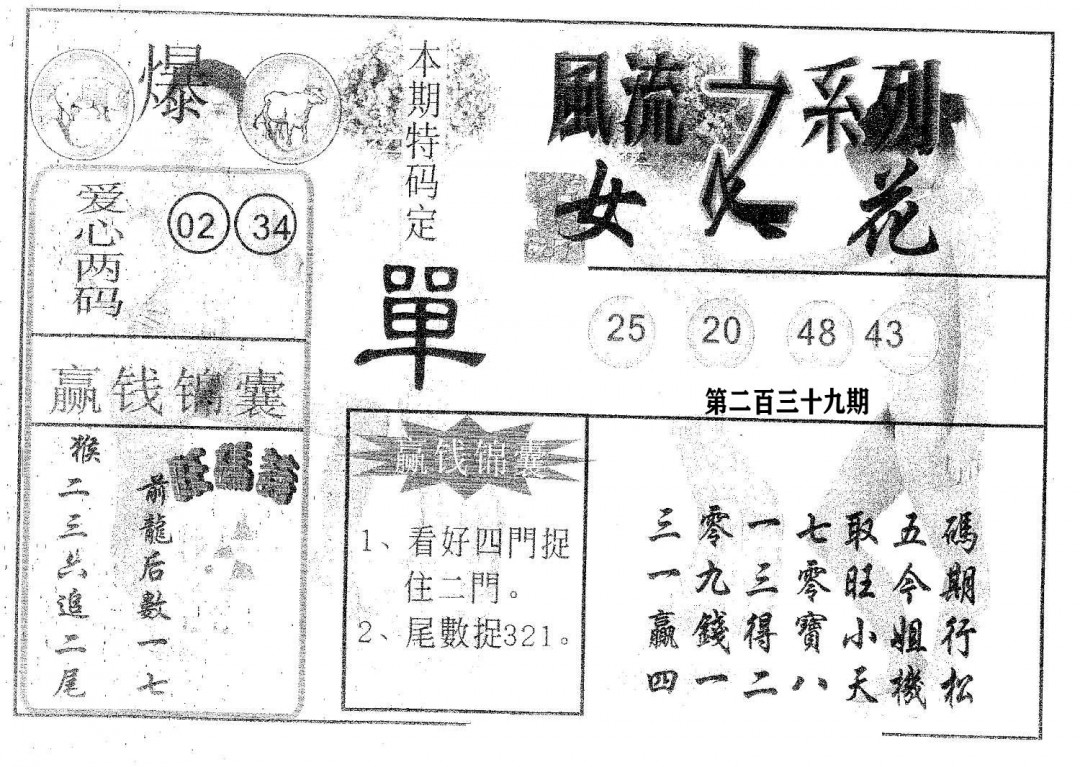 爆
爱心两码
02 34
赢钱锦囊
旺碼孝
猴二三六追二尾
前龍后數一七
本期特码定
單
風流之系列
女人花
25 20 48 43
第二百三十九期
赢钱锦囊
1、看好四門捉
住二門。
2、尾數捉321。
三零一七取五碼
一九三零旺今期
贏錢得寶小姐行
四一二八天機松